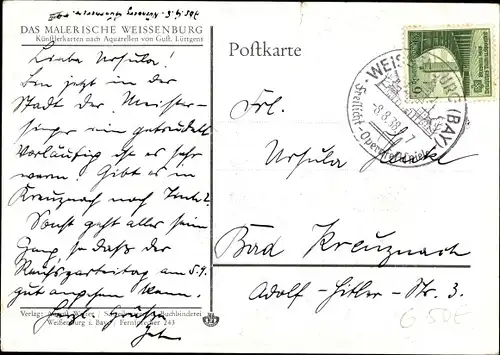 DAS MALERISCHE WEISSENBURG
Künstlerkarten nach Aquarellen von Gust. Lüttgens
Liebe Ursula!
Bin jetzt in der
Stadt der Meister-
singer ein getrudelt
Vorläufig ist es sehr
warm! Gibt es in
Kreuznach noch Tinte?
Sonst geht alles sein
Gang, so daß der
Reichsparteitag am 5.9.
gut angehen kann.
Herzl. Grüße
Verlag: / Buchbinderei
Weißenburg i. Bay. / Fernsprecher 243
Postkarte
WEISSENBURG (BAY)
8.8.38-7
Freilicht-
6
Frl.
Ursula
Bad Kreuznach
Adolf-Hitler-Str. 3.
G 50E